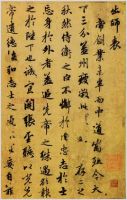 出師表
帝創業未半而中道崩殂今天
下三分益州疲敝此存亡之
秋然侍衛之臣不懈於內忠志之士
忘身於外者蓋追先帝之殊遇欲報
之於陛下也誠宜開張聖聽以光先
帝遺德恢弘志士之氣不宜妄自